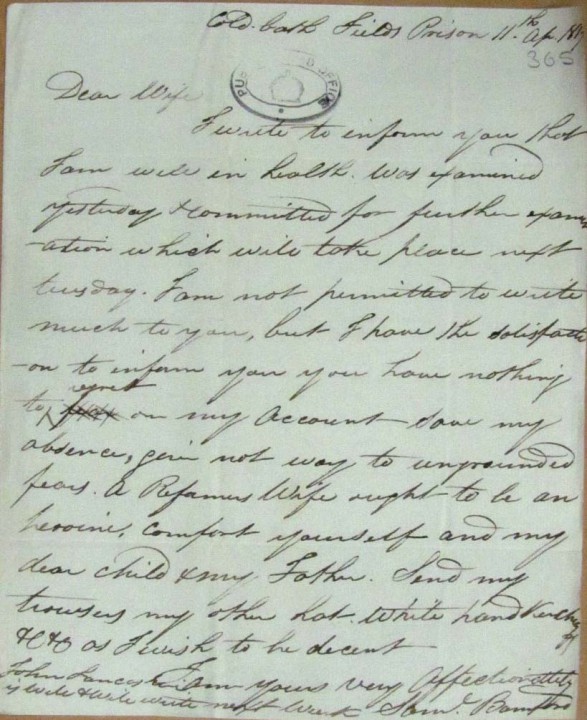 Cold-bath Fields Prison 11th Ap. 181
365
PUB OFFICE
Dear Wife
I write to inform you that
I am well in health. Was examined
yesterday & committed for further exami
-ation which will take place next
tuesday. I am not permitted to write
much to you, but I have the satisfacti
-on to inform you you have nothing
regret
to on my Account save my
absence, give not way to ungrounded
fears. A Reformers Wife ought to be an
heroine, comfort yourself and my
dear child & my Father. Send my
trowsers my other hat White handkerchiefs
&c &c as I wish to be decent
I am yours very Affectionately
John Lancashire
is well & will write next week Saml. Bamford